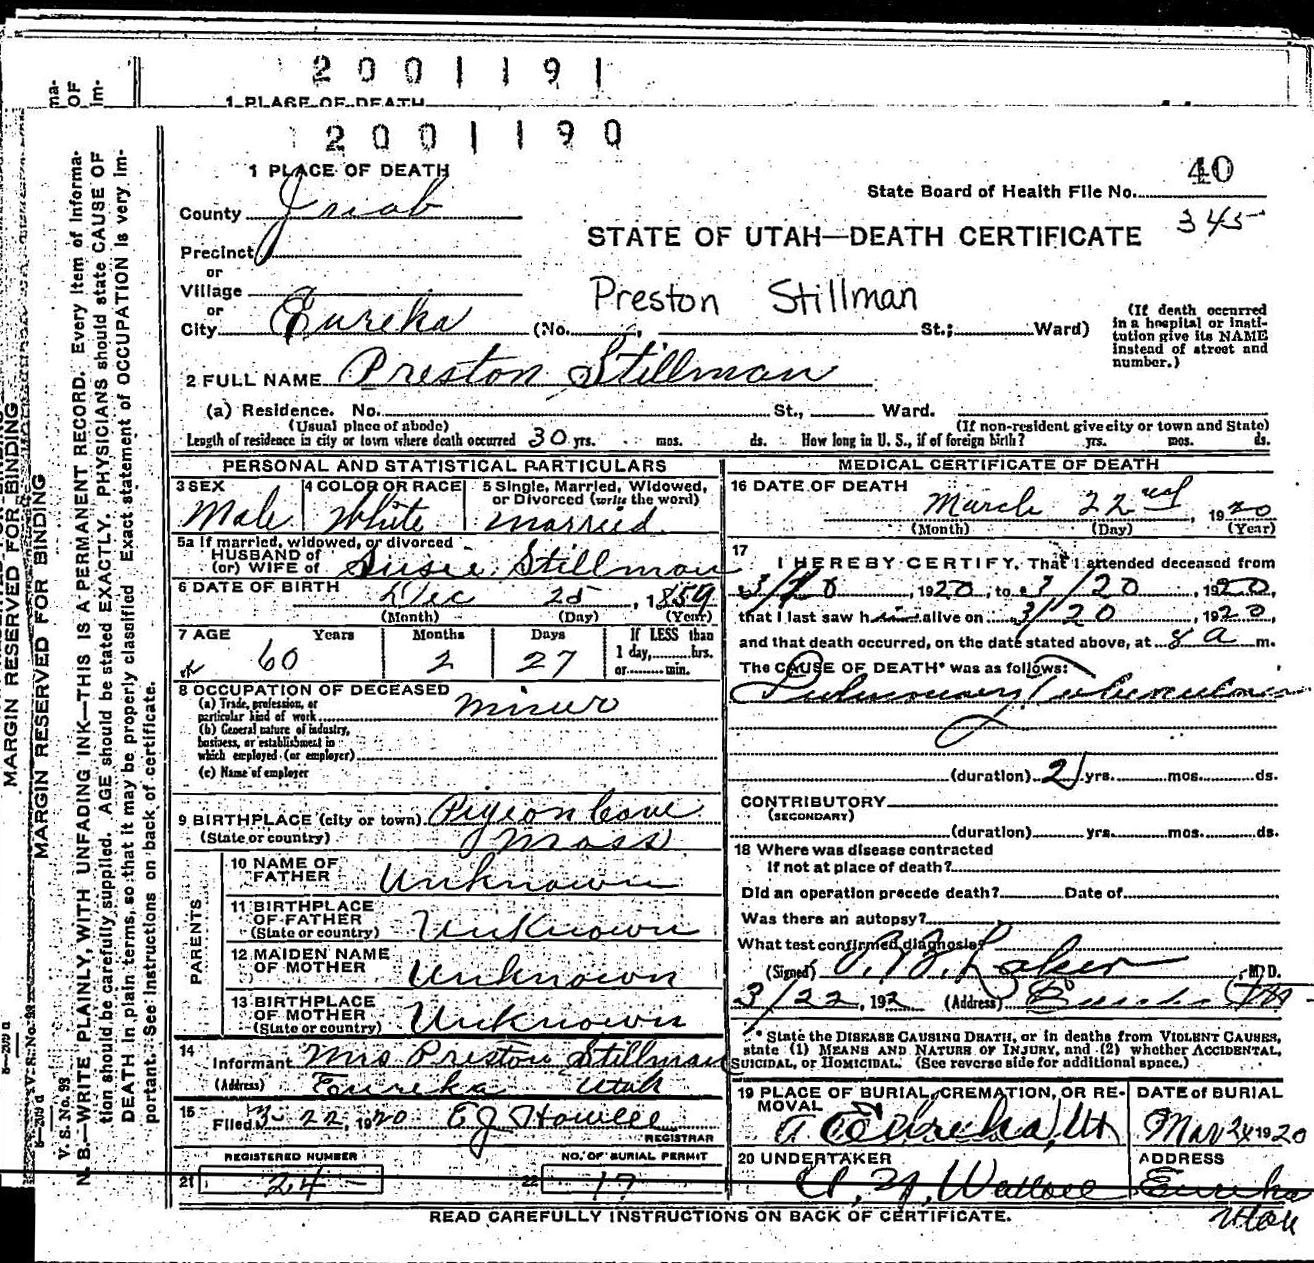 2001191
1 PLACE OF DEATH
2001190
1 PLACE OF DEATH
40
State Board of Health File No.
345
County Juab
STATE OF UTAH—DEATH CERTIFICATE
Precinct
or
Village
Preston Stillman
or
City Eureka (No. , St.; Ward)
(If death occurred in a hospital or insti-tution give its NAME instead of street and number.)
2 FULL NAME Preston Stillman
(a) Residence. No. St., Ward.
(Usual place of abode) (If non-resident give city or town and State)
Length of residence in city or town where death occurred 30 yrs. mos. ds. How long in U. S., if of foreign birth? yrs. mos. ds.
PERSONAL AND STATISTICAL PARTICULARS
3 SEX Male
4 COLOR OR RACE White
5 Single, Married, Widowed, or Divorced (write the word) Married
5a If married, widowed, or divorced
HUSBAND of
(or) WIFE of Susie Stillman
6 DATE OF BIRTH Dec 25, 1859
(Month) (Day) (Year)
7 AGE Years Months Days If LESS than
60 2 27 1 day, hrs.
or min.
8 OCCUPATION OF DECEASED
(a) Trade, profession, or
particular kind of work miner
(b) General nature of industry,
business, or establishment in
which employed (or employer)
(c) Name of employer
9 BIRTHPLACE (city or town) Pigeon Cove
(State or country) Mass
PARENTS
10 NAME OF
FATHER Unknown
11 BIRTHPLACE
OF FATHER
(State or country) Unknown
12 MAIDEN NAME
OF MOTHER Unknown
13 BIRTHPLACE
OF MOTHER
(State or country) Unknown
14
Informant Mrs Preston Stillman
(Address) Eureka Utah
15
Filed 3-22, 1920 E J Howell
REGISTRAR
REGISTERED NUMBER NO. OF BURIAL PERMIT
21 24 22 17
MEDICAL CERTIFICATE OF DEATH
16 DATE OF DEATH
March 22nd, 1920
(Month) (Day) (Year)
17
I HEREBY CERTIFY, That I attended deceased from
, 1920, to 3/20, 1920,
that I last saw him alive on 3/20, 1920,
and that death occurred, on the date stated above, at 8 a m.
The CAUSE OF DEATH* was as follows:
Pulmonary Tuberculosis
(duration) 2 yrs. mos. ds.
CONTRIBUTORY
(SECONDARY)
(duration) yrs. mos. ds.
18 Where was disease contracted
if not at place of death?
Did an operation precede death? Date of
Was there an autopsy?
What test confirmed diagnosis?
(Signed) M. D.
3/22, 192 (Address) Eureka
* State the DISEASE CAUSING DEATH, or in deaths from VIOLENT CAUSES,
state (1) MEANS AND NATURE OF INJURY, and (2) whether ACCIDENTAL,
SUICIDAL, or HOMICIDAL. (See reverse side for additional space.)
19 PLACE OF BURIAL, CREMATION, OR RE-
MOVAL
Eureka, Ut
DATE of BURIAL
Mar 1920
20 UNDERTAKER
ADDRESS
Eureka
Utah
READ CAREFULLY INSTRUCTIONS ON BACK OF CERTIFICATE.
MARGIN RESERVED FOR BINDING
MARGIN RESERVED FOR BINDING
V. S. No. 93
N. B.—WRITE PLAINLY, WITH UNFADING INK—THIS IS A PERMANENT RECORD. Every item of informa-
tion should be carefully supplied. AGE should be stated EXACTLY. PHYSICIANS should state CAUSE OF
DEATH in plain terms, so that it may be properly classified. Exact statement of OCCUPATION is very im-
portant. See instructions on back of certificate.